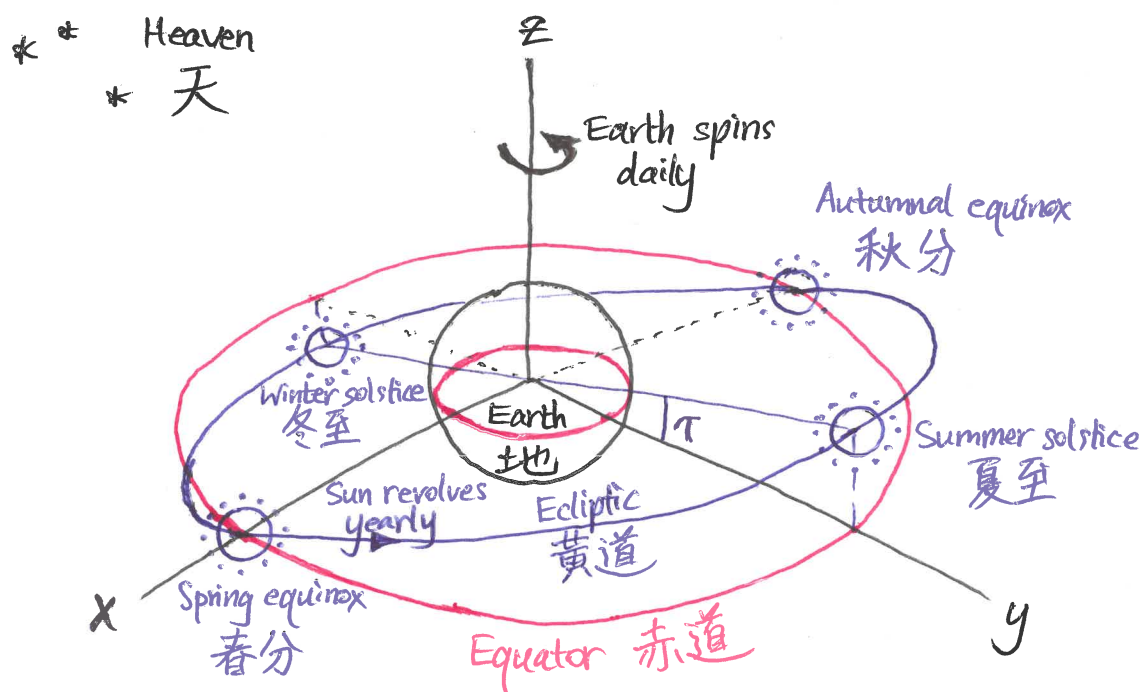 Heaven
天
Z
Earth spins
daily
Autumnal equinox
秋分
Winter solstice
冬至
Earth
地
τ
Summer solstice
夏至
Sun revolves
yearly
Ecliptic
黃道
X
Spring equinox
春分
Equator 赤道
y